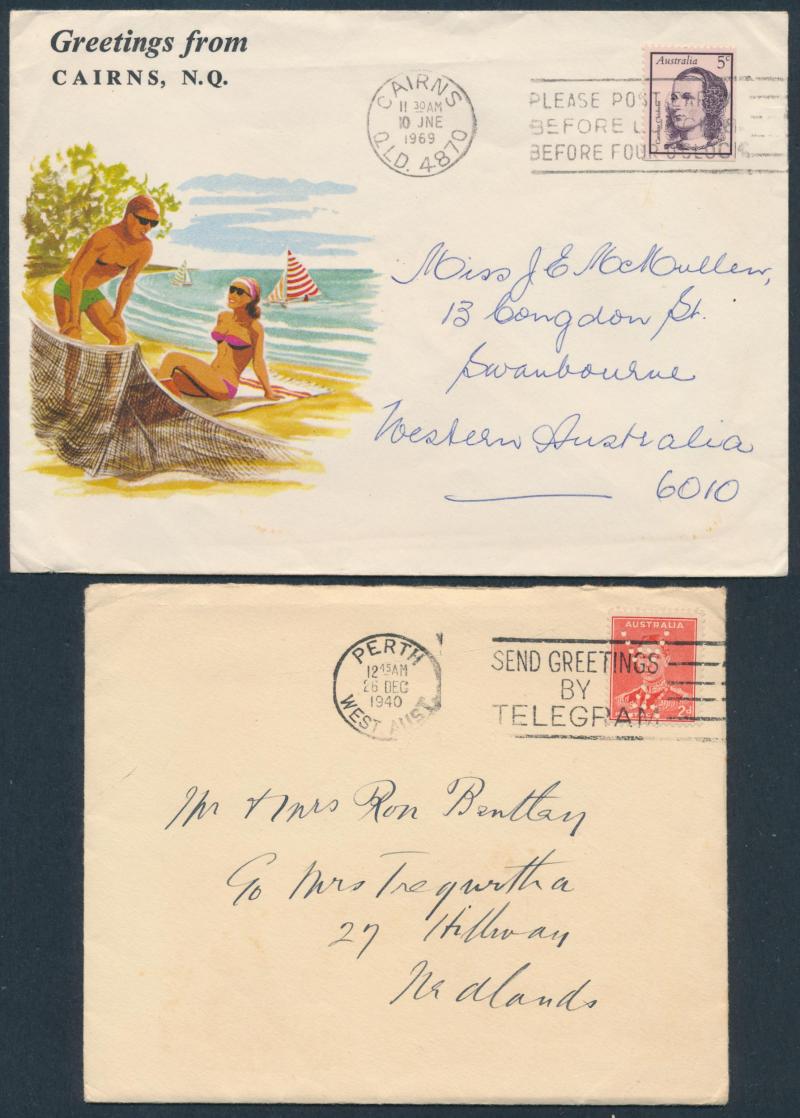 Greetings from
CAIRNS, N.Q.
CAIRNS
11 30AM
10 JNE
1969
QLD. 4870
PLEASE POST
BEFORE
BEFORE FOUR O'CLOCK
Australia 5c
Miss J E McMullen,
13 Congdon St.
Swanbourne
Western Australia
6010
PERTH
12 45AM
26 DEC
1940
WEST AUST
SEND GREETINGS
BY
TELEGRAM
AUSTRALIA
2d
Mr & Mrs Ron Bentley
c/o Mrs Tregurtha
27 Hillway
Nedlands